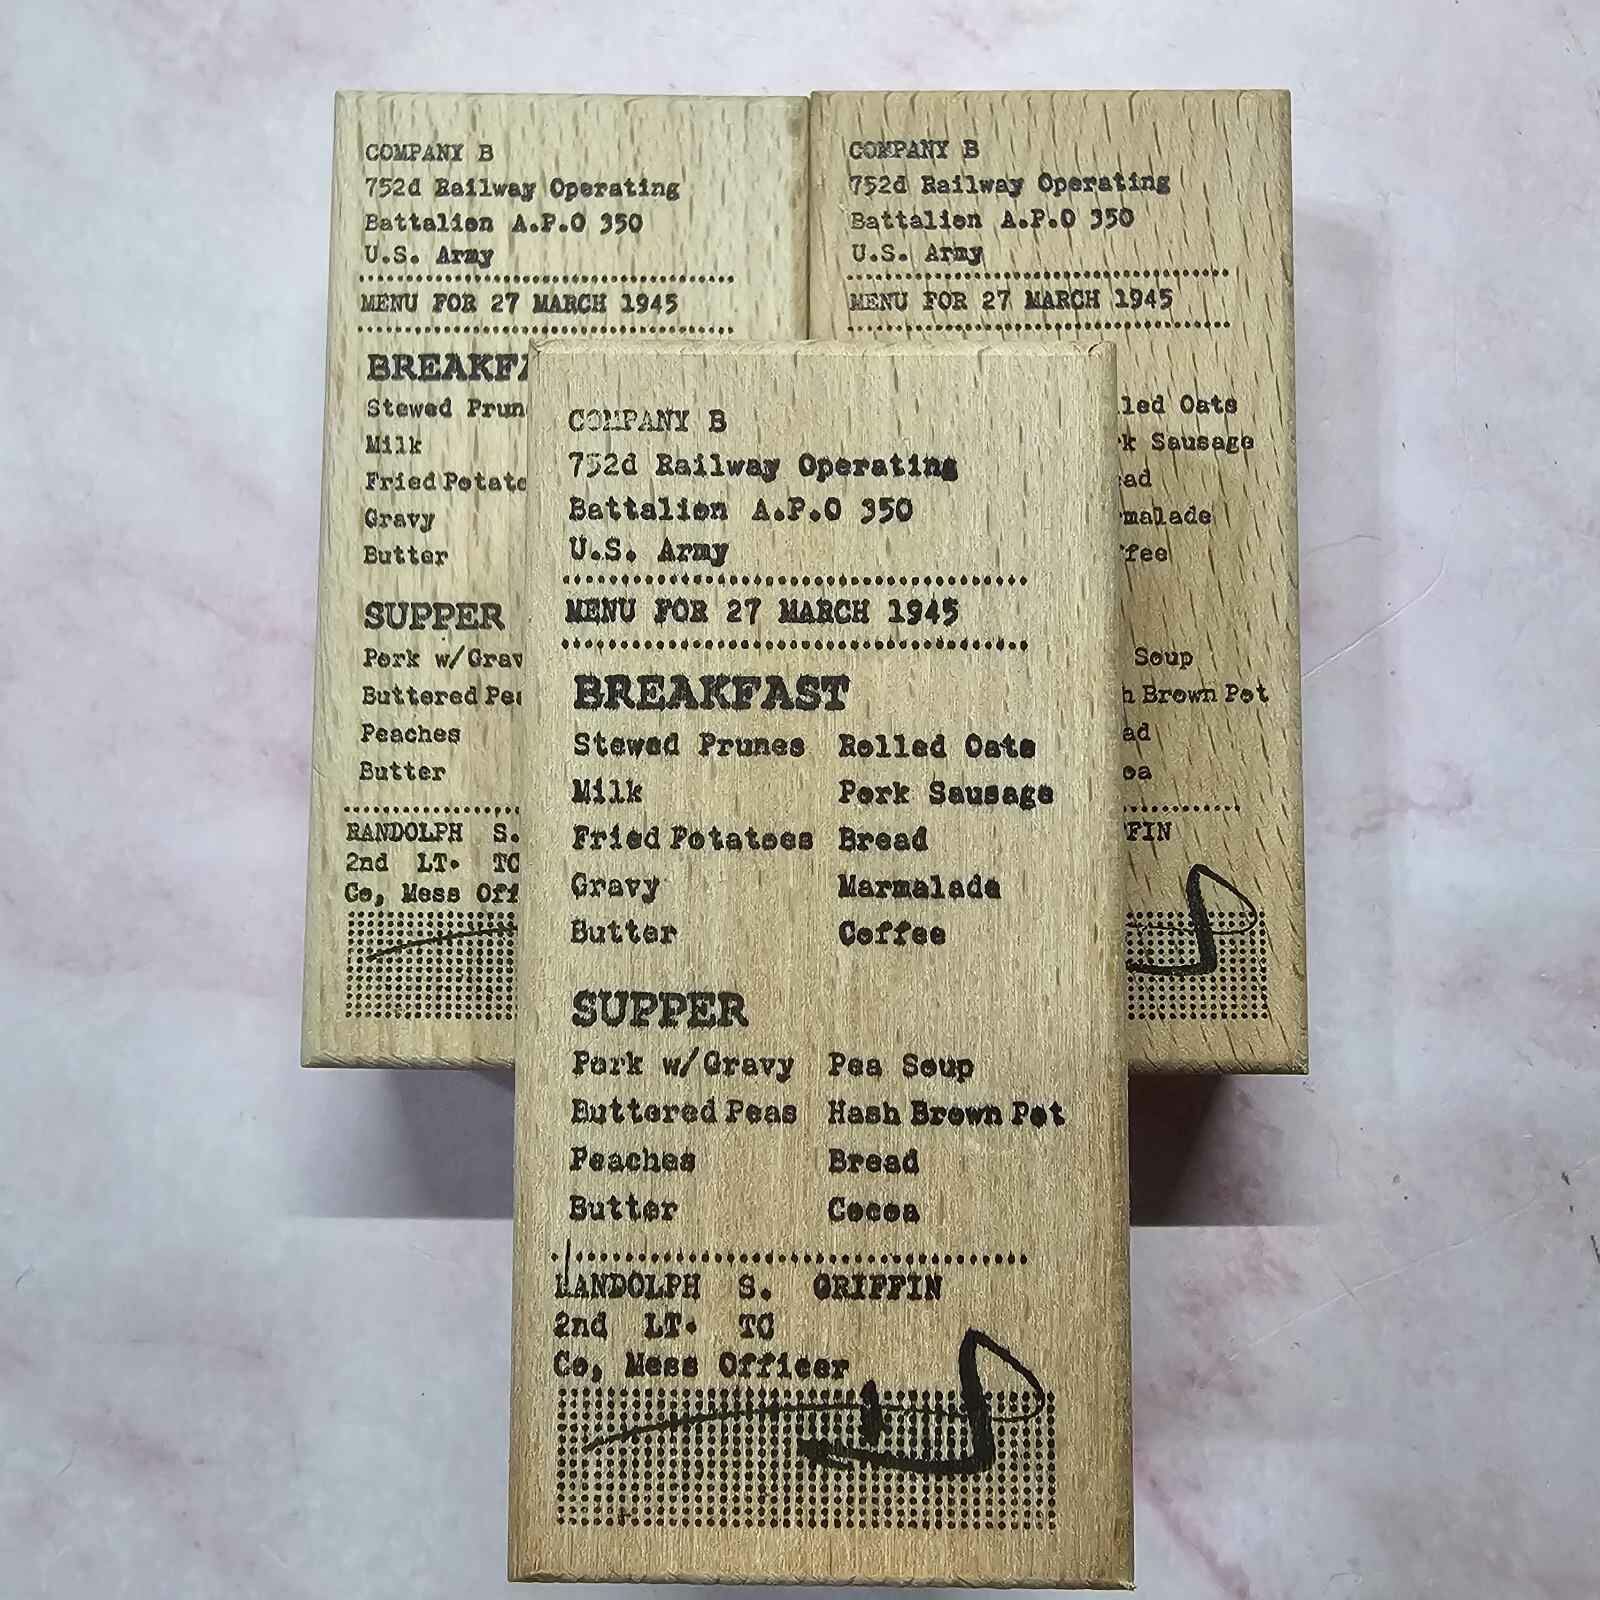 COMPANY B
752d Railway Operating
Battalion A.P.O 350
U.S. Army
MENU FOR 27 MARCH 1945
BREAKFA
Stewed Prun
Milk
Fried Potato
Gravy
Butter
SUPPER
Pork w/Grav
Buttered Pea
Peaches
Butter
RANDOLPH S.
2nd LT. TC
Co, Mess Off
COMPANY B
752d Railway Operating
Battalion A.P.O 350
U.S. Army
MENU FOR 27 MARCH 1945
lled Oats
k Sausage
ead
malade
ffee
Soup
h Brown Pot
ad
oa
FFIN
COMPANY B
752d Railway Operating
Battalion A.P.O 350
U.S. Army
MENU FOR 27 MARCH 1945
BREAKFAST
Stewed Prunes Rolled Oats
Milk Pork Sausage
Fried Potatoes Bread
Gravy Marmalade
Butter Coffee
SUPPER
Pork w/Gravy Pea Soup
Buttered Peas Hash Brown Pot
Peaches Bread
Butter Cocoa
RANDOLPH S. GRIFFIN
2nd LT. TC
Co, Mess Officer